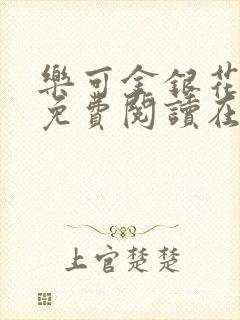 樂可金銀花
免費閱讀在
上官楚楚